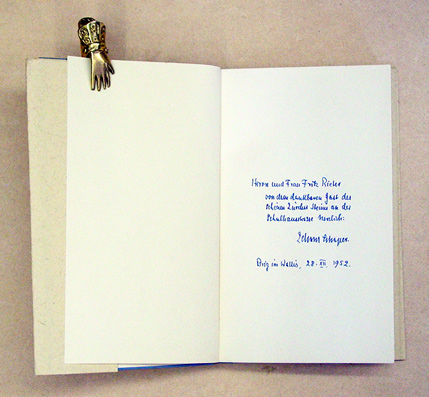 Herrn und Frau Fritz Rieter
von dem dankbaren Gast des
schönen Zürcher Heims an der
herzlich:
Brig im Wallis, 28. XII. 1952.